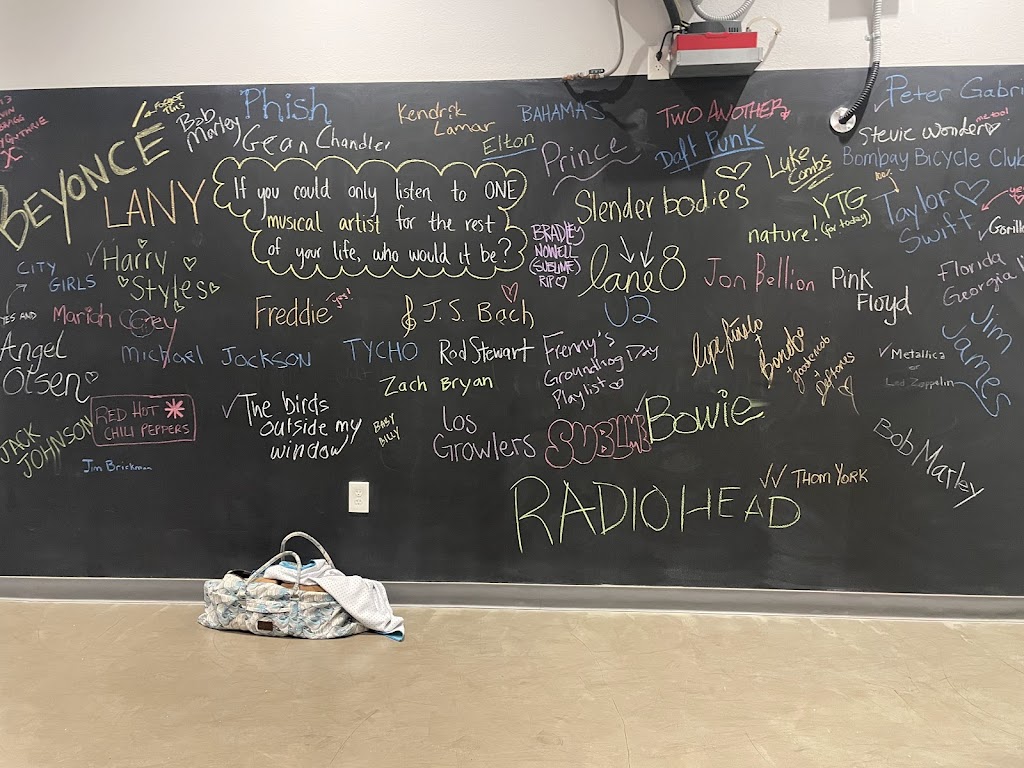 If you could only listen to ONE
musical artist for the rest
of your life, who would it be?
GUTHRIE
BEYONCE
FORGET
THIS
Bob
Marley
Phish
Gean Chandler
Kendrik
Lamar
Elton
BAHAMAS
Prince
TWO ANOTHER
Daft Punk
Luke
Combs
Peter Gabri
me too!
Stevie Wonder
Bombay Bicycle Club
LANY
Slenderbodies
YTG
(for today)
nature!
Taylor
Swift
Gorill
BRADLEY
NOWELL
(SUBLIME)
RIP
lane 8
Jon Bellion
Pink
Floyd
Florida
Georgia
CITY
GIRLS
Harry
Styles
YES AND
Mariah Carey
Freddie
J.S. Bach
U2
Jim
James
Angel
Olsen
michael Jackson
TYCHO
Rod Stewart
Frenny's
Groundhog Day
Playlist
lupe fiasco
+
Bondo
+
+ Deftones
Metallica
or
Led Zeppelin
Zach Bryan
JACK
JOHNSON
RED HOT
CHILI PEPPERS
The birds
outside my
window
BABY
BILLY
Los
Growlers
SUBLIME
Bowie
Bob Marley
Jim Brickman
RADIOHEAD
Thom York